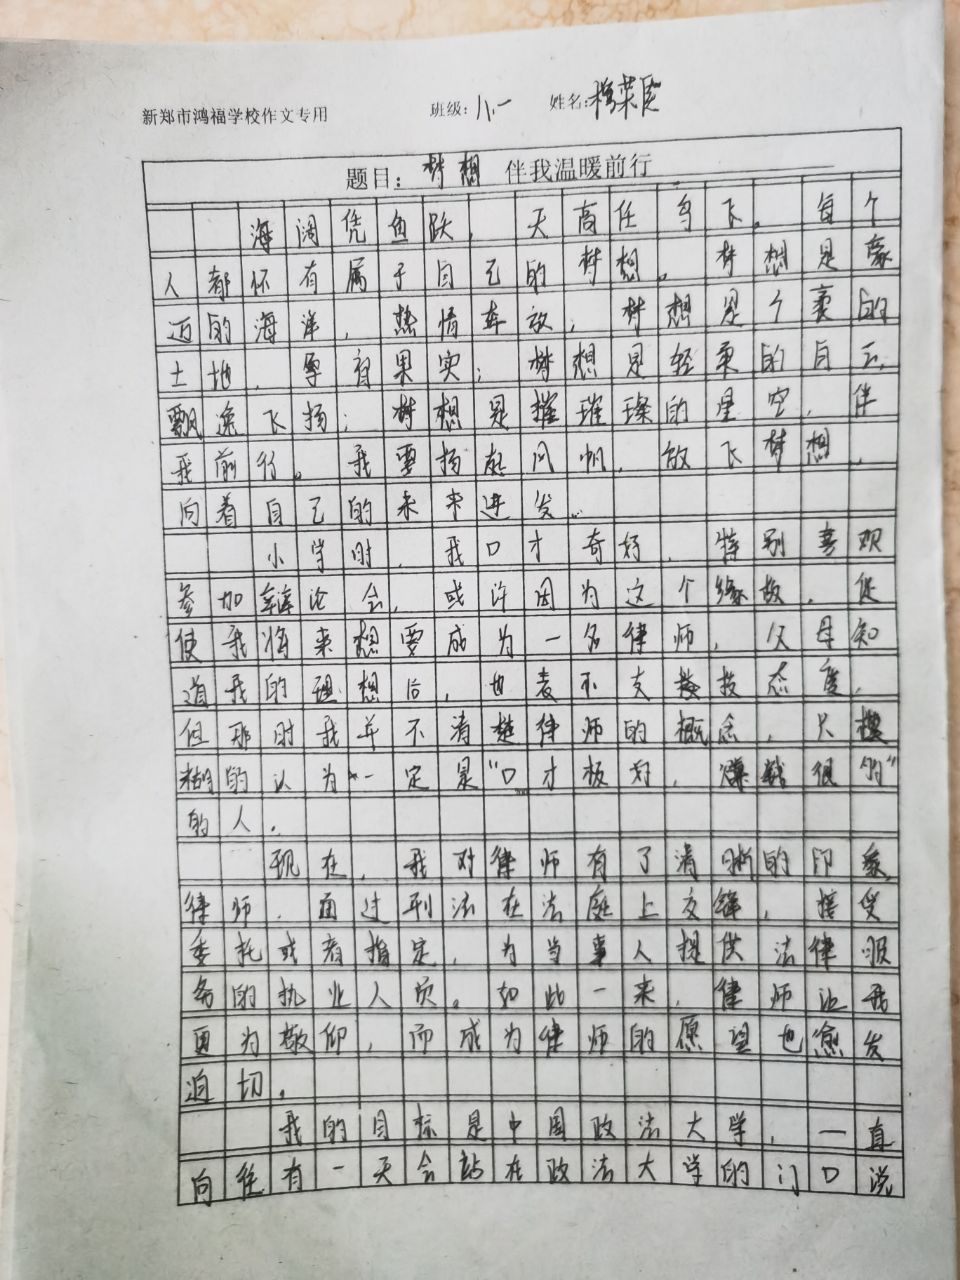 新郑市鸿福学校作文专用 班级: 八.一 姓名:
题目: 梦想 伴我温暖前行
海阔凭鱼跃,天高任鸟飞。每个
人都怀有属于自己的梦想。梦想是豪
迈的海洋,热情奔放;梦想是个裹的
土地,孕育果实;梦想是轻柔的白云,
飘逸飞扬;梦想是摧璀璨的星空,伴
我前行。我要扬起风帆,放飞梦想,
向着自己的未来进发。
小学时,我口才奇好,特别喜欢
参加辩论会,或许因为这个缘故,促
使我将来想要成为一名律师,父母知
道我的理想后,也表不支 技态度,
但那时我并不清楚律师的概念,只模
糊的认为一定是“口才极好, 很 ”
的人。
现在,我对律师有了清晰的印象,
律师,面过刑法在法庭上交锋,接受
委托或者指定,为当事人提供法律服
务的执业人员。如此一来,律师让我
更为敬仰,而成为律师的愿望也愈发
迫切。
我的目标是中国政法大学,一直
向往有一天会站在政法大学的门口说